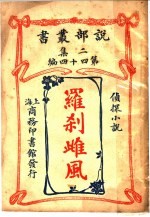 說部叢書
二集
第四十四編
偵探小說
羅刹雌風
上海商務印書館發行